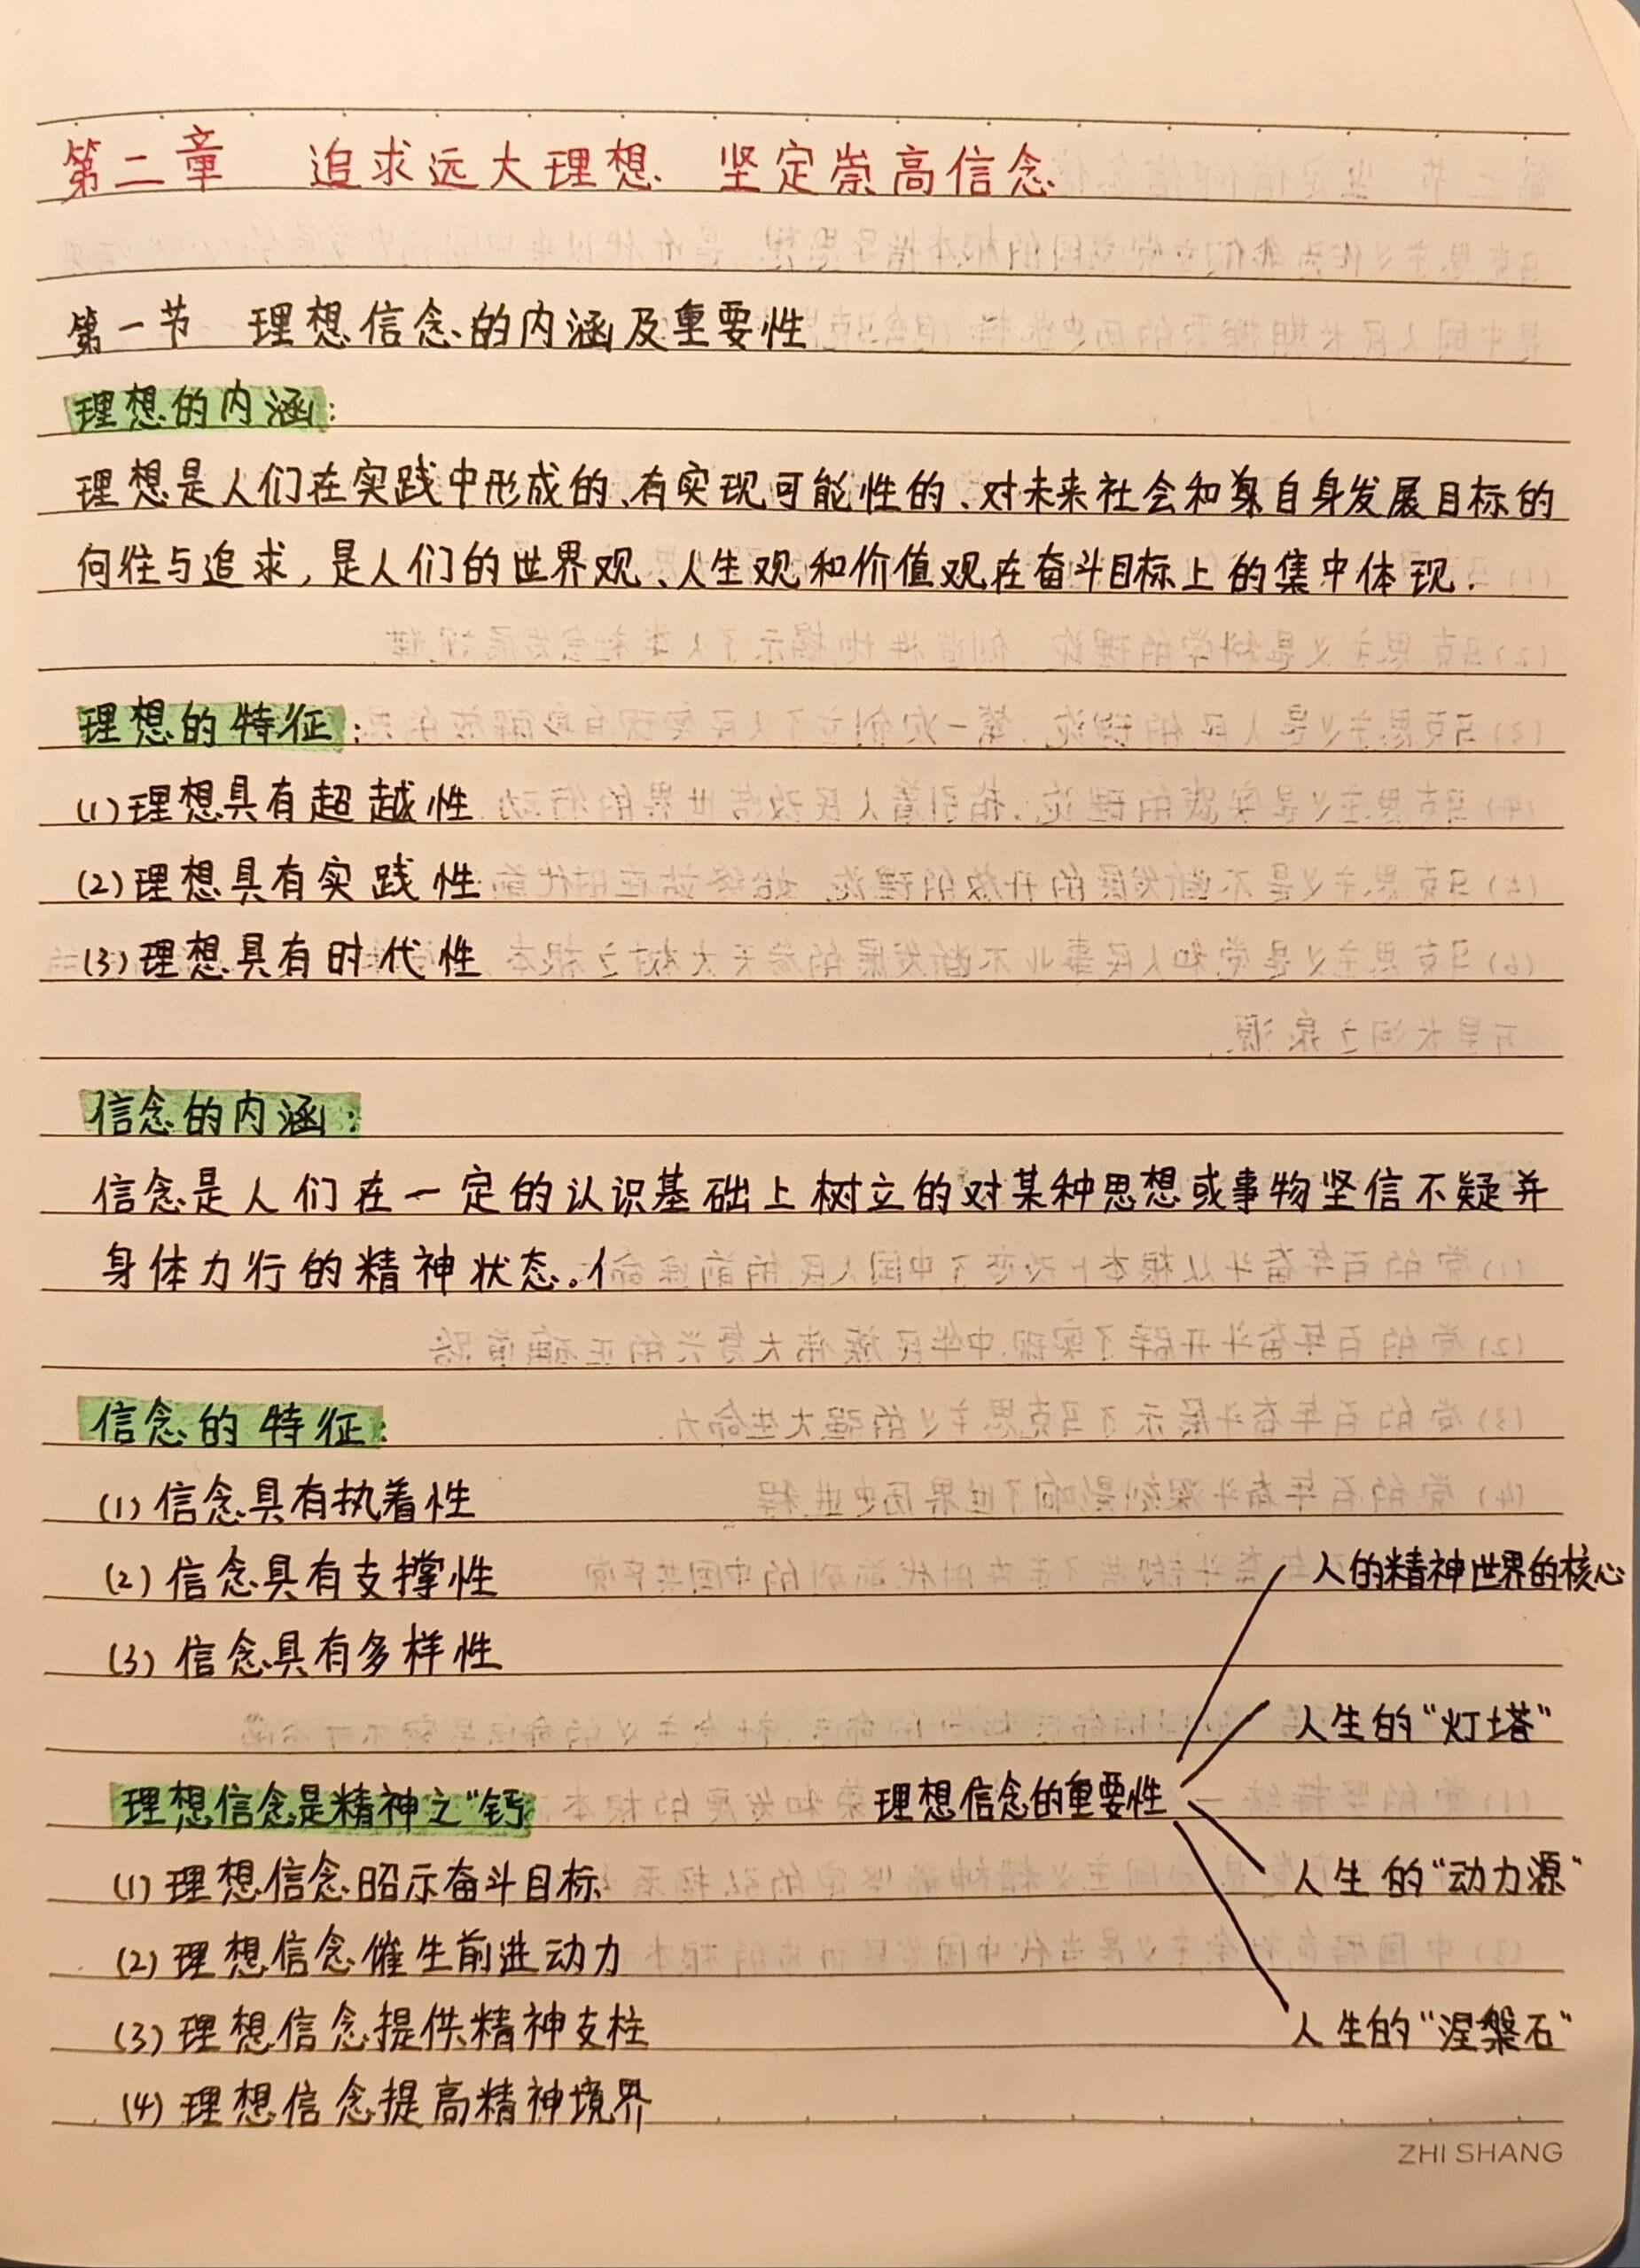 第二章 追求远大理想 坚定崇高信念
第一节 理想信念的内涵及重要性
理想的内涵:
理想是人们在实践中形成的、有实现可能性的、对未来社会和自身发展目标的
向往与追求,是人们的世界观、人生观和价值观在奋斗目标上的集中体现.
理想的特征:
(1)理想具有超越性
(2)理想具有实践性
(3)理想具有时代性
信念的内涵:
信念是人们在一定的认识基础上树立的对某种思想或事物坚信不疑并
身体力行的精神状态。
信念的特征:
(1)信念具有执着性
(2)信念具有支撑性
(3)信念具有多样性
理想信念是精神之"钙
(1)理想信念昭示奋斗目标
(2)理想信念催生前进动力
(3)理想信念提供精神支柱
(4)理想信念提高精神境界
理想信念的重要性
人的精神世界的核心
人生的"灯塔"
人生的"动力源"
人生的"涅槃石"
ZHI SHANG